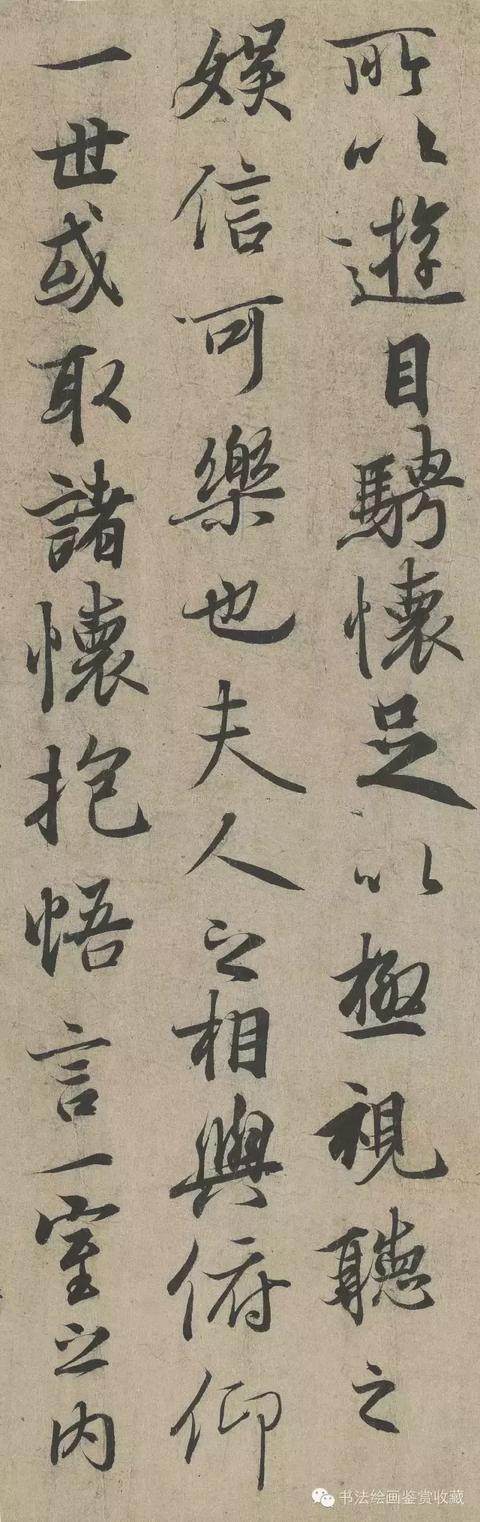 所以遊目騁懷足以極視聽之
娱信可樂也夫人之相與俯仰
一世或取諸懷抱悟言一室之内
书法绘画鉴赏收藏